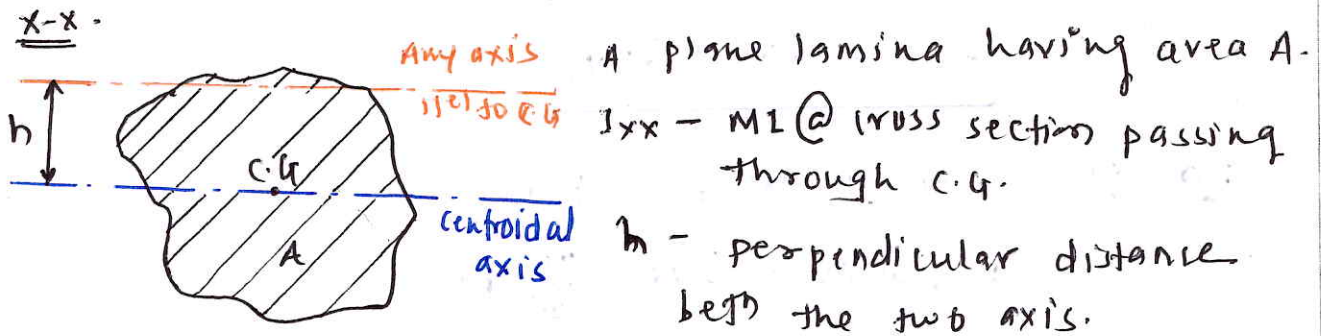 X-X.
Any axis
||el to C.G
h
C.G
A
Centroidal
axis
A plane lamina having area A.
Ixx - MI @ cross section passing
through C.G.
h - perpendicular distance
betn the two axis.